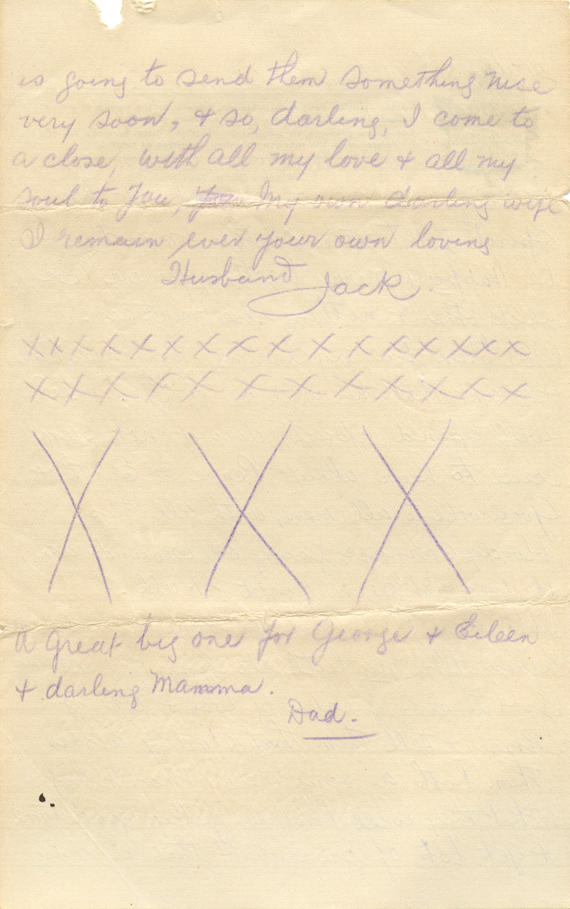 is going to send them something nise
very soon, & so, darling, I come to
a close, with all my love & all my
soul to You, My own darling wife
I remain ever your own loving
Husband Jack.
x x x x x x x x x x x x x x x x x x
x x x x x x x x x x x x x x
X X X
A great big one for George & Eileen
& darling Mamma.
Dad.